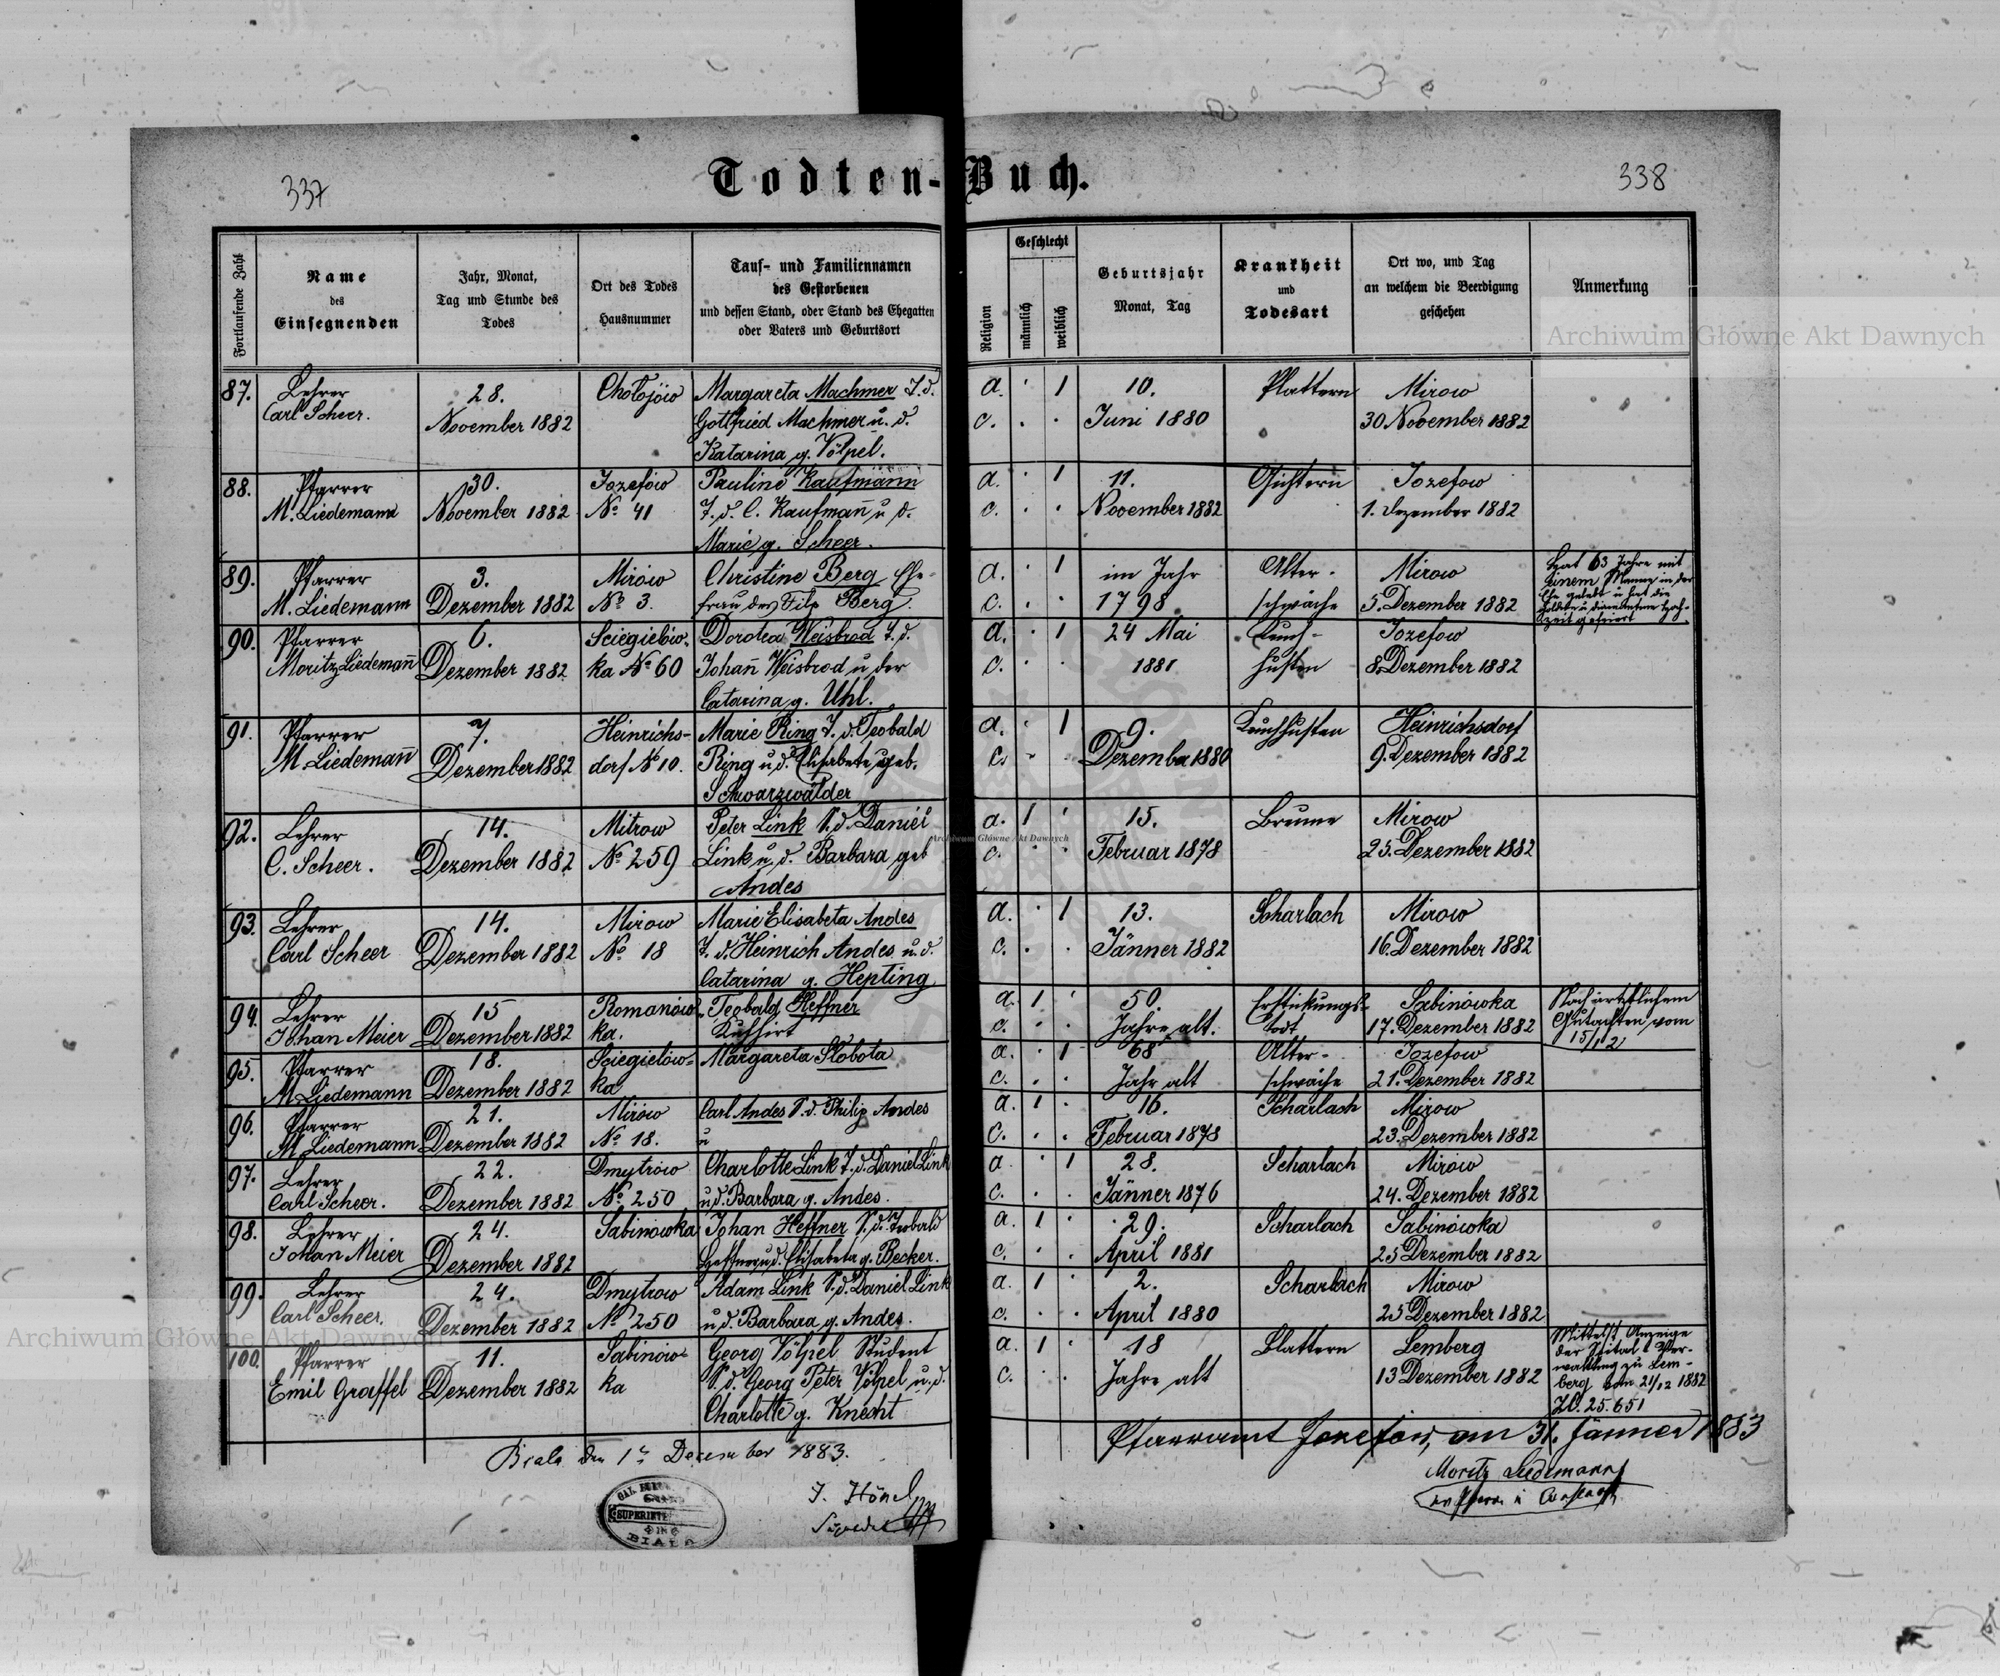 337
Todten-Buch.
338
Fortlaufende Zahl
Name
des
Einsegnenden
Jahr, Monat,
Tag und Stunde des
Todes
Ort des Todes
Hausnummer
Tauf- und Familiennamen
des Gestorbenen
und dessen Stand, oder Stand des Ehegatten
oder Vaters und Geburtsort
Religion
Geschlecht
männlich
weiblich
Geburtsjahr
Monat, Tag
Krankheit
und
Todesart
Ort wo, und Tag
an welchem die Beerdigung
geschehen
Anmerkung
Archiwum Główne Akt Dawnych
87. Lehrer 28. Chołojów Margareta Machmer T. d. a. 1 10. Blattern Mirow
Carl Scheer. November 1882 Gottfried Machmer u. d. c. Juni 1880 30 November 1882
Katarina g. Völpel.
88. Pfarrer 30. Jozefów Pauline Kaufmann a. 1 11. Gichtern Jozefow
M. Liedemann November 1882 No 41 T. d. C. Kaufmañ u d. c. November 1882 1. Dezember 1882
Marie g. Scheer.
89. Pfarrer 3. Mirów Christine Berg Ehe- a. 1 im Jahr Alter- Mirow Hat 63 Jahre mit
M. Liedemann Dezember 1882 No 3. frau des Filp Berg. c. 1798 schwäche 5. Dezember 1882 seinem Manne in der
Ehe gelebt u hat die
goldene u. diamantene Hoch-
zeit gefeiert
90. Pfarrer 6. Sciegielów- Dorotea Weisbrod T. d. a. 1 24 Mai Keuch- Jozefow
Moritz Liedemañ Dezember 1882 ka No 60 Johañ Weisbrod u der c. 1881 husten 8. Dezember 1882
Catarina g. Uhl.
91. Pfarrer 7. Heinrichs- Marie Ring T. d. Teobald a. 1 9. Keuchhusten Heinrichsdorf
M. Liedemañ Dezember 1882 dorf No 10. Ring u. d. Elisabeta geb. c. Dezember 1880 9. Dezember 1882
Schwarzwälder
92. Lehrer 14. Mitrow Peter Link S. d. Daniel a. 1 15. Breune Mirow
C. Scheer. Dezember 1882 No 259 Link u. d. Barbara geb c. Februar 1878 25. Dezember 1882
Andes
Archiwum Główne Akt Dawnych
93. Lehrer 14. Mirow Marie Elisabeta Andes a. 1 13. Scharlach Mirow
Carl Scheer Dezember 1882 No 18 T. d. Heinrich Andes u. d. c. Jänner 1882 16. Dezember 1882
Catarina g. Hepting
94. Lehrer 15 Romanów- Teobald Heffner a. 1 50. Erstickungs- Sabinówka Nach ärztlichem
Johan Meier Dezember 1882 ka. Kuhhirt c. Jahre alt. tod 17. Dezember 1882 Gutachten vom
15/12
95. Pfarrer 18. Sciegielów- Margareta Slobota a. 1 68 Alter- Jozefow
M. Liedemann Dezember 1882 ka c. Jahr alt schwäche 21. Dezember 1882
96. Pfarrer 21. Mirów Carl Andes S. d. Philip Andes a. 1 16. Scharlach Mirow
M. Liedemann Dezember 1882 No 18. u c. Februar 1878 23. Dezember 1882
97. Lehrer 22. Dmytrów Charlotte Link T. d. Daniel Link a. 1 28. Scharlach Mirów
Carl Scheer. Dezember 1882 No 250 u d. Barbara g. Andes. c. Jänner 1876 24. Dezember 1882
98. Lehrer 24. Sabinówka Johan Heffner S. d. Teobald a. 1 29. Scharlach Sabinówka
Johan Meier Dezember 1882 Heffner u. d. Elisabeta g. Becker. c. April 1881 25 Dezember 1882
99. Lehrer 24. Dmytrow Adam Link S. d. Daniel Link a. 1 2. Scharlach Mirow
Carl Scheer. Dezember 1882 No 250 u. d. Barbara g. Andes. c. April 1880 25 Dezember 1882
Archiwum Główne Akt Dawnych
100. Pfarrer 11. Sabinów- Georg Völpel Student a. 1 18 Blattern Lemberg Mittelst Anzeige
Emil Graffel Dezember 1882 ka S. d. Georg Peter Völpel u. d. c. Jahre alt 13 Dezember 1882 der Spital Ver-
Charlotte g. Knecht waltung zu Lem-
berg vom 21/12 1882
Zl. 25.651
Biala den 1 Dezember 1883.
Pfarramt Jozefow, am 31. Jänner 1883
J. Hönel
Moritz Liedemann
SUPERINTE
BIALA